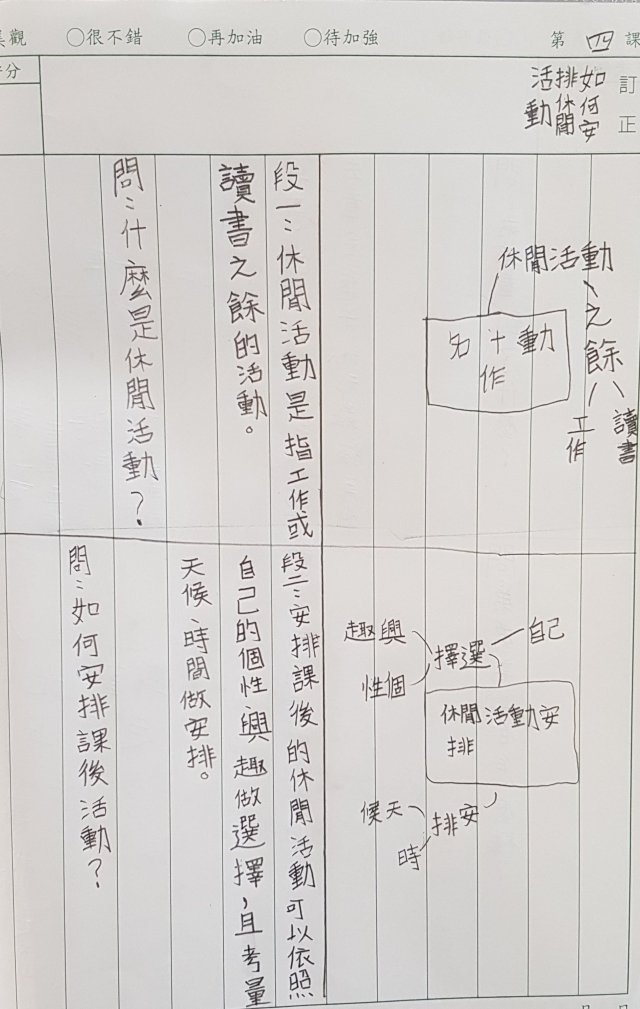 觀 ○很不錯 ○再加油 ○待加強
第四課
分
訂正
如何安
排休閒
活動
休閒活動
之餘
讀書
工作
名 十 動
作
段一:休閒活動是指工作或
讀書之餘的活動。
問:什麼是休閒活動?
自己
選擇
興趣
個性
休閒活動安
排
安排
天候
時
段二:安排課後的休閒活動可以依照
自己的個性興趣做選擇,且考量
天候、時間做安排。
問:如何安排課後活動?